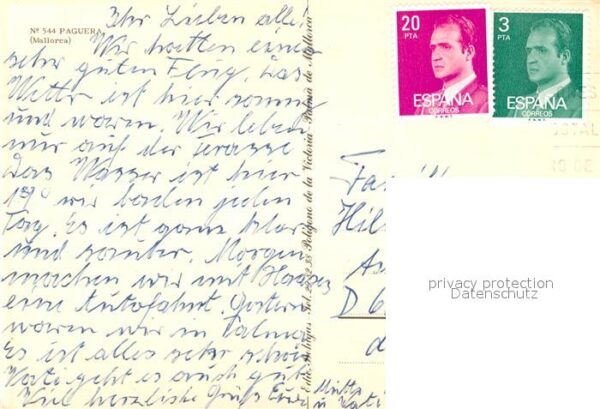 Nº 544 PAGUERA
(Mallorca)
Ihr Lieben alle!
Wir hatten eine
sehr guten Flug, das
Wetter ist hier sonnig
und warm. Wir leben
nur auf der Terasse
Das Wasser ist hier
19º wir baden jeden
Tag. Es ist ganz klar
und sauber. Morgen
machen wir mit
eine Autofahrt. Gestern
waren wir in Palma
Es ist alles sehr schön
Kati geht es auch gut
Viel herzliche Grüße Eure Mutti
u. Kati
Edic. Tel. Polígono de la Victoria - Palma de Mallorca
20
PTA
ESPAÑA
CORREOS
3
PTA
ESPAÑA
CORREOS
Fam
Hil
D 6
privacy protection
Datenschutz